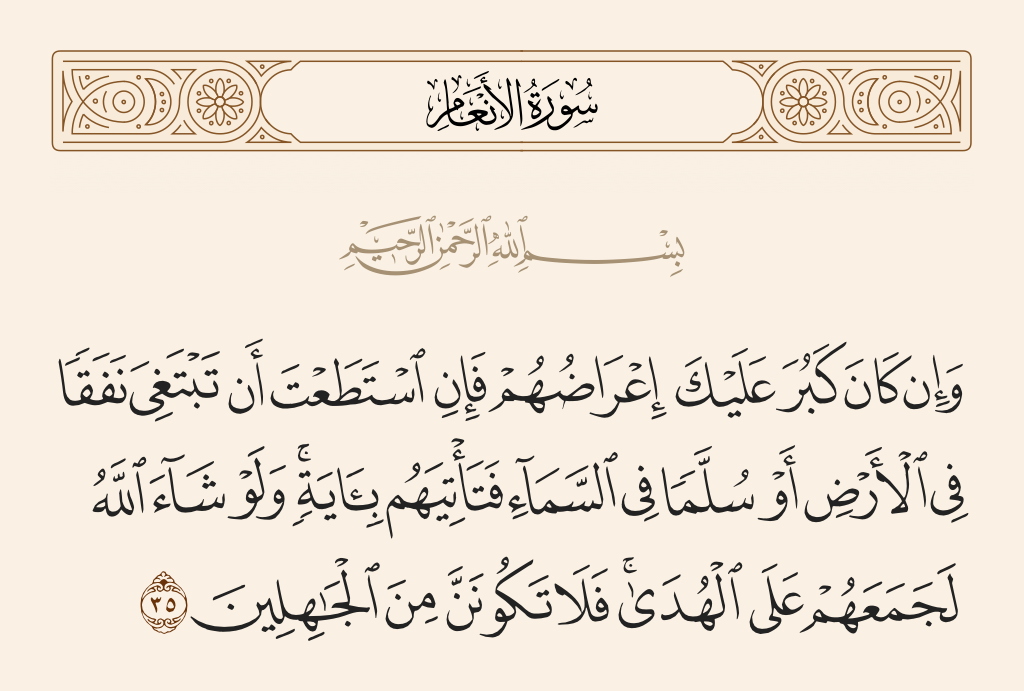 سُورَةُ الأَنْعَامِ
بِسْمِ ٱللَّهِ ٱلرَّحْمَٰنِ ٱلرَّحِيمِ
وَإِن كَانَ كَبُرَ عَلَيْكَ إِعْرَاضُهُمْ فَإِنِ ٱسْتَطَعْتَ أَن تَبْتَغِىَ نَفَقًا
فِى ٱلْأَرْضِ أَوْ سُلَّمًا فِى ٱلسَّمَآءِ فَتَأْتِيَهُم بِـَٔايَةٍۚ وَلَوْ شَآءَ ٱللَّهُ
لَجَمَعَهُمْ عَلَى ٱلْهُدَىٰۚ فَلَا تَكُونَنَّ مِنَ ٱلْجَـٰهِلِينَ ٣٥